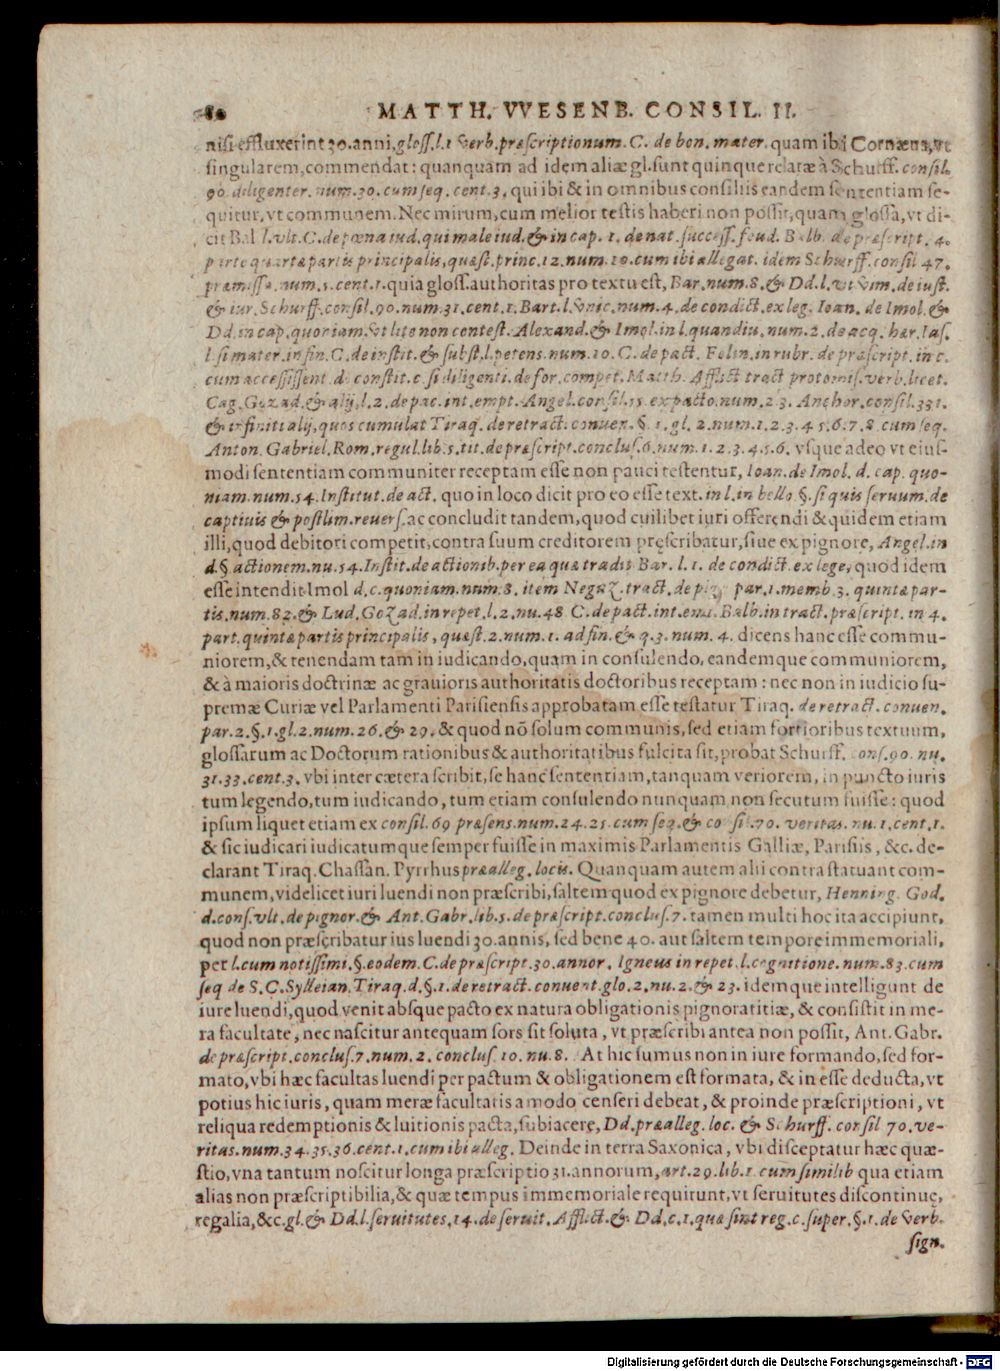 80 MATTH. VVESENB. CONSIL. II.
nisi effluxerint 30. anni, gloss. l. 1 verb. præscriptionum. C. de bon. mater. quam ibi Cornæus, vt
singularem, commendat: quanquam ad idem aliæ gl. sunt quinque relatæ à Schurff. consil.
90. diligenter. num. 30. cum seq. cent. 3. qui ibi & in omnibus consiliis eandem sententiam se-
quitur, vt communem. Nec mirum, cum melior testis haberi non possit, quam glossa, vt di-
cit Bal l. vlt. C. de pœna iud. qui male iud. & in cap. 1. de nat. success. feud. Balb. de præscript. 4.
parte quartæ partis principalis, quæst. princ. 12. num. 19. cum ibi allegat. idem Schurff. consil 47.
præmissa. num. 5. cent. 1. quia gloss. authoritas pro textu est, Bar. num. 8. & Dd. l. vt vim. de iust.
& iur. Schurff. consil. 90. num. 31. cent. 1. Bart. l. vnic. num. 4. de condict. ex leg. Ioan. de Imol. &
Dd. in cap. quoniam. vt lite non contest. Alexand. & Imol. in l. quandiu. num. 2. de acq. hær. Ias.
l. si mater. in fin. C. de instit. & subst. l. petens. num. 10. C. de pact. Felin. in rubr. de præscript. in c.
cum accessissent. de constit. c. si diligenti. de for. compet. Matth. Afflict tract protomis. verb. licet.
Cag. Gozad. & alij, l. 2. de pac. int. empt. Angel. consil. 15. ex pacto. num. 23. Anchor. consil. 331.
& infiniti alij, quos cumulat Tiraq. de retract. conuen. §. 1. gl. 2. num. 1. 2. 3. 4. 5. 6. 7. 8. cum seq.
Anton. Gabriel. Rom. regul. lib. 5. tit. de præscript. conclus. 6. num. 1. 2. 3. 4. 5. 6. vsque adeo vt eius-
modi sententiam communiter receptam esse non pauci testentur, Ioan. de Imol. d. cap. quo-
niam. num. 54. Institut. de act. quo in loco dicit pro eo esse text. in l. in bello. §. si quis seruum. de
captiuis & postlim. reuers. ac concludit tandem, quod cuilibet iuri offerendi & quidem etiam
illi, quod debitori competit, contra suum creditorem pręscribatur, siue ex pignore, Angel. in
d. §. actionem. nu. 54. Instit. de actionib. per ea quæ tradit Bar. l. 1. de condict. ex lege, quod idem
esse intendit Imol d. c. quoniam. num. 8. item Neguz. tract. de par. 1. memb. 3. quintæ par-
tis. num. 82. & Lud. Gozad. in repet. l. 2. nu. 48 C. de pact. int. emt. Balb. in tract. præscript. in 4.
part. quintæ partis principalis, quæst. 2. num. 1. ad fin. & q. 3. num. 4. dicens hanc esse commu-
niorem, & tenendam tam in iudicando, quam in consulendo, eandemque communiorem,
& à maioris doctrinæ ac grauioris authoritatis doctoribus receptam: nec non in iudicio su-
premæ Curiæ vel Parlamenti Parisiensis approbatam esse testatur Tiraq. de retract. conuen.
par. 2. §. 1. gl. 2. num. 26. & 29. & quod nõ solum communis, sed etiam fortioribus textuum,
glossarum ac Doctorum rationibus & authoritatibus fulcita sit, probat Schurff. cons. 90. nu.
31. 33. cent. 3. vbi inter cætera scribit, se hanc sententiam, tanquam veriorem, in puncto iuris
tum legendo, tum iudicando, tum etiam consulendo nunquam non secutum fuisse: quod
ipsum liquet etiam ex consil. 69 præsens. num. 24. 25. cum seq. & consil. 70. veritas. nu. 1. cent. 1.
& sic iudicari iudicatumque semper fuisse in maximis Parlamentis Galliæ, Parisiis, &c. de-
clarant Tiraq. Chassan. Pyrrhus præalleg. locis. Quanquam autem alii contra statuant com-
munem, videlicet iuri luendi non præscribi, saltem quod ex pignore debetur, Henning. God.
d. cons. vlt. de pignor. & Ant. Gabr. lib. 5. de præscript. conclus. 7. tamen multi hoc ita accipiunt,
quod non præscribatur ius luendi 30. annis, sed bene 40. aut saltem tempore immemoriali,
per l. cum notissimi. §. eodem. C. de præscript. 30. annor. Igneus in repet. l. cognitione. num. 83. cum
seq de S. C. Sylleian. Tiraq. d. §. 1. de retract. conuent. glo. 2. nu. 2. & 23. idemque intelligunt de
iure luendi, quod venit absque pacto ex natura obligationis pignoratitiæ, & consistit in me-
ra facultate, nec nascitur antequam sors sit soluta, vt præscribi antea non possit, Ant. Gabr.
de præscript. conclus. 7. num. 2. conclus. 10. nu. 8. At hic sumus non in iure formando, sed for-
mato, vbi hæc facultas luendi per pactum & obligationem est formata, & in esse deducta, vt
potius hic iuris, quam meræ facultatis a modo censeri debeat, & proinde præscriptioni, vt
reliqua redemptionis & luitionis pacta, subiacere, Dd. præalleg. loc. & Schurff. consil 70. ve-
ritas. num. 34. 35. 36. cent. 1. cum ibi alleg. Deinde in terra Saxonica, vbi disceptatur hæc quæ-
stio, vna tantum noscitur longa præscriptio 31. annorum, art. 29. lib. 1. cum similib qua etiam
alias non præscriptibilia, & quæ tempus immemoriale requirunt, vt seruitutes discontinuę,
regalia, &c. gl. & Dd. l. seruitutes. 14. de seruit. Afflict. & Dd. c. 1. quæ sint reg. c. super. §. 1. de verb.
sign.
Digitalisierung gefördert durch die Deutsche Forschungsgemeinschaft - DFG